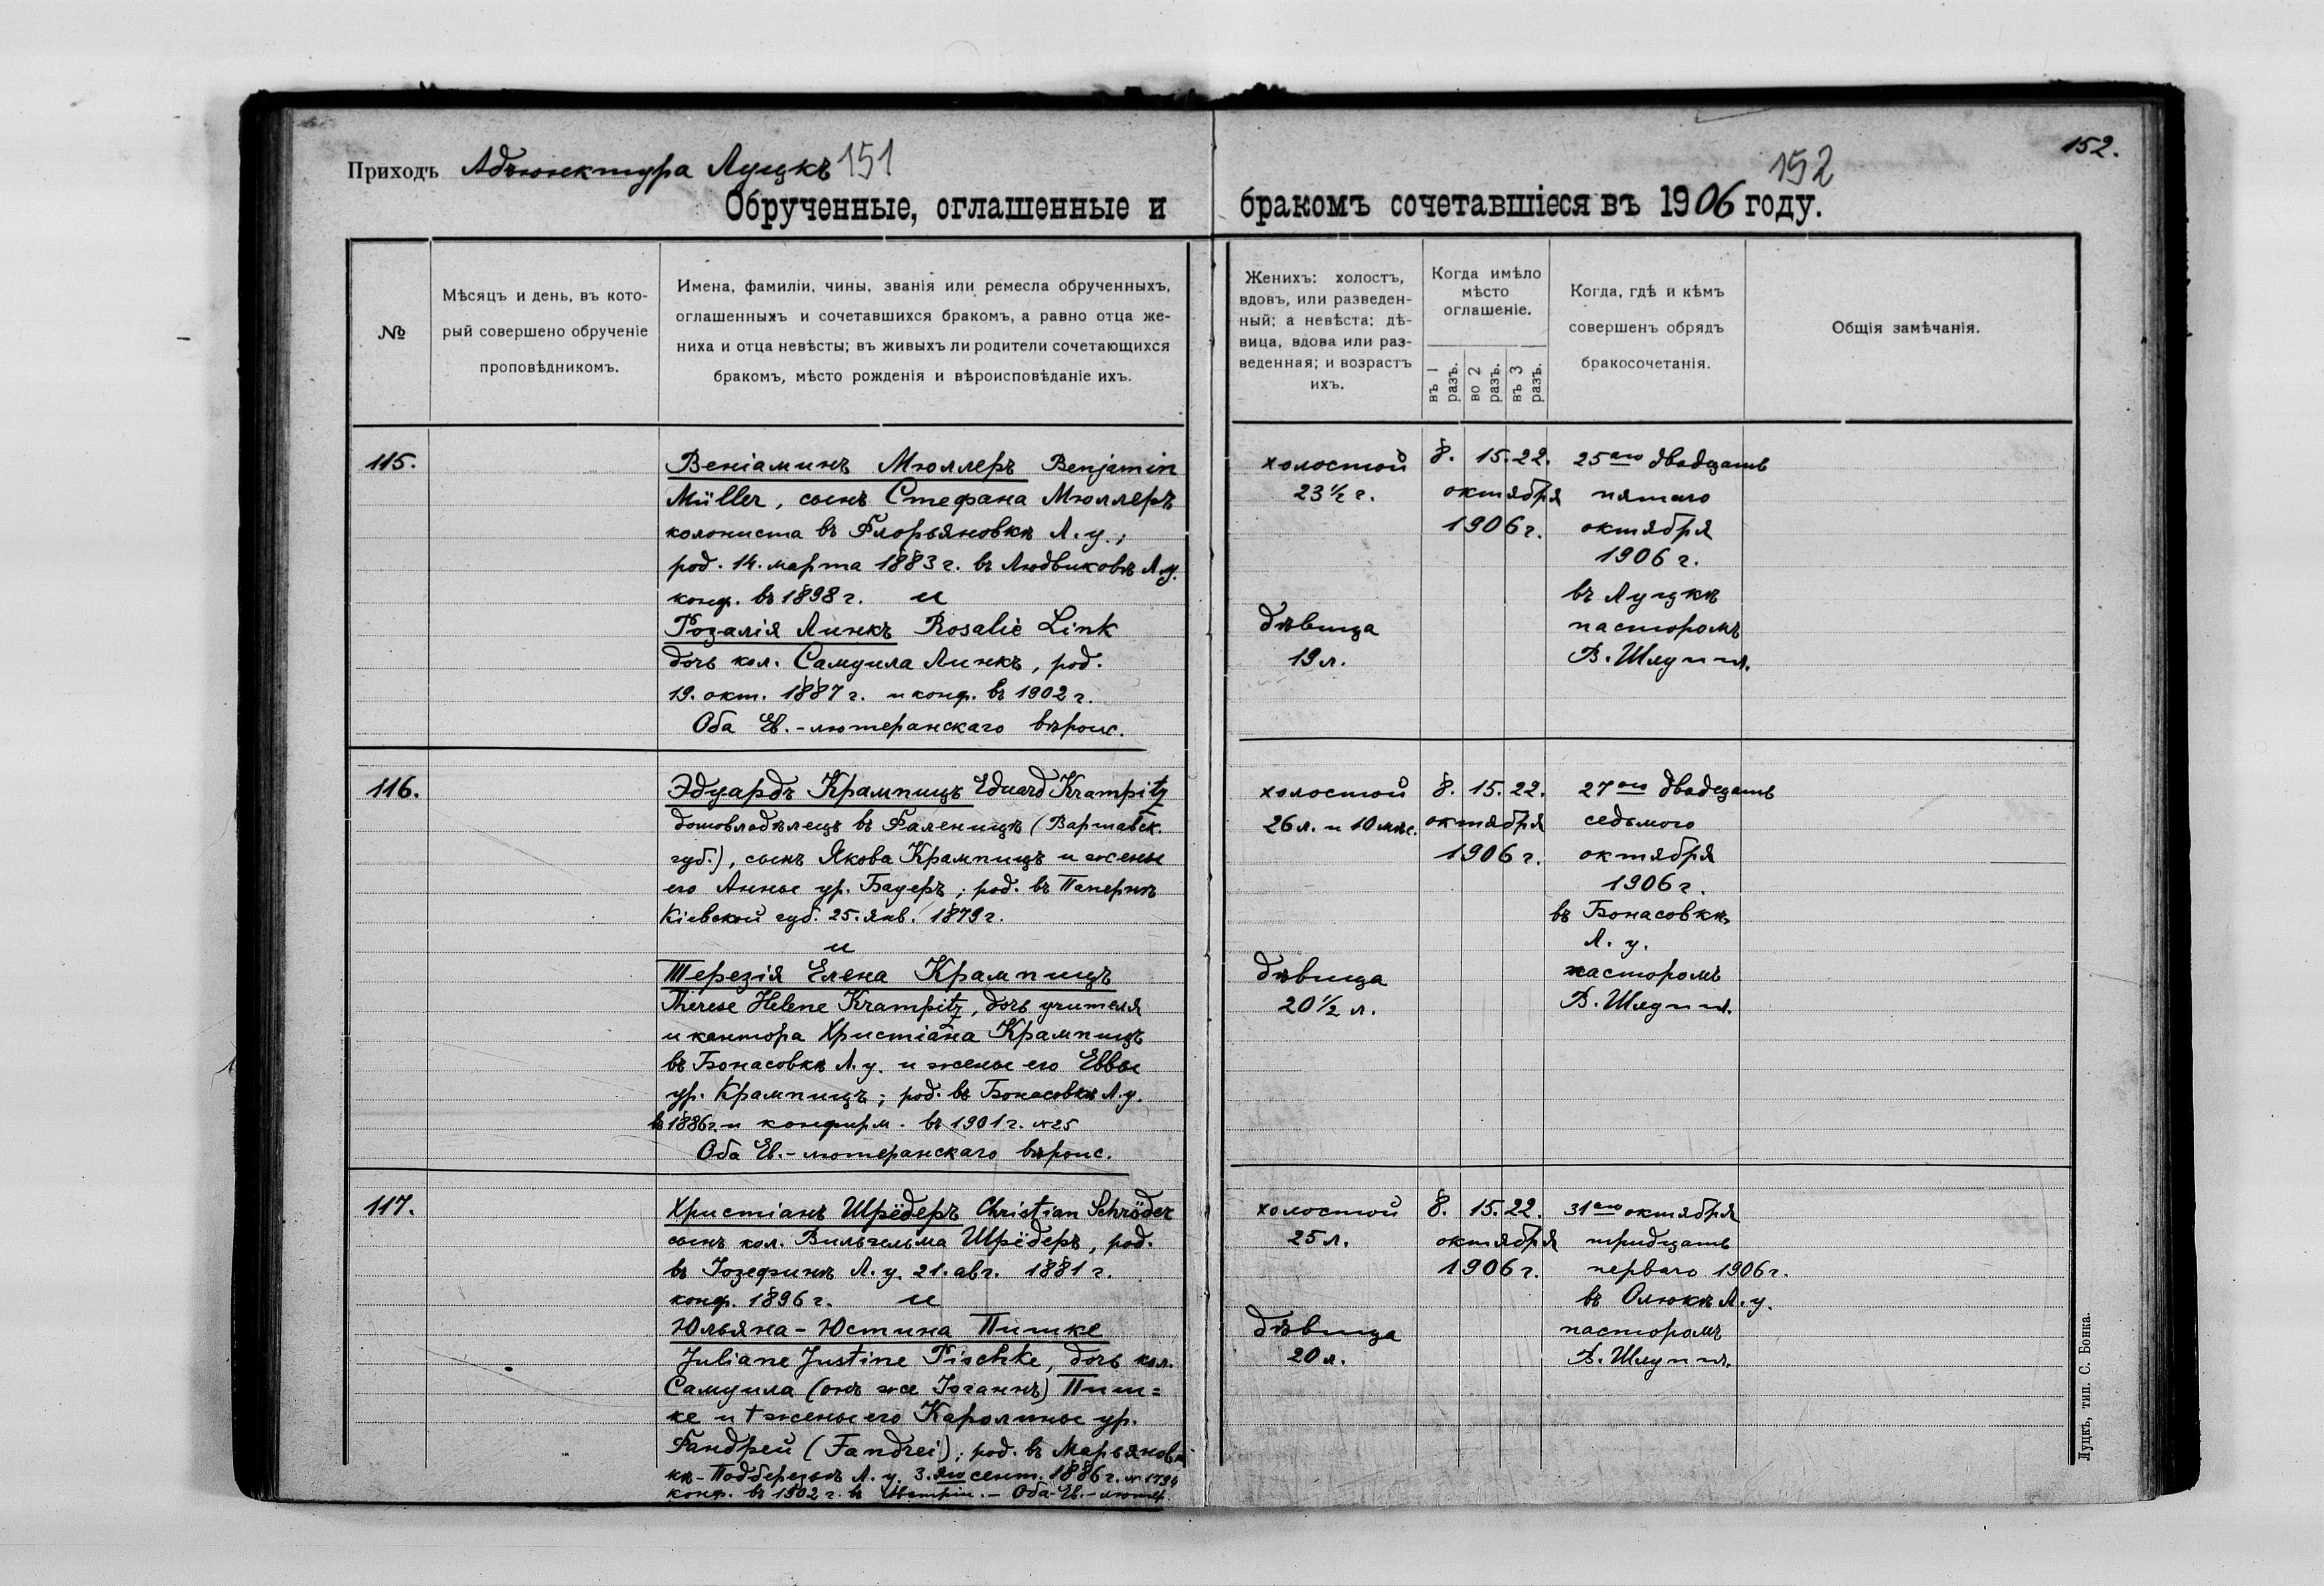 Приходъ Адъюнктура Луцкъ 151
152.
152
Обрученные, оглашенные и бракомъ сочетавшіеся въ 1906 году.
№
Мѣсяцъ и день, въ кото-
рый совершено обрученіе
проповѣдникомъ.
Имена, фамиліи, чины, званія или ремесла обрученныхъ,
оглашенныхъ и сочетавшихся бракомъ, а равно отца же-
ниха и отца невѣсты; въ живыхъ ли родители сочетающихся
бракомъ, мѣсто рожденія и вѣроисповѣданіе ихъ.
Женихъ: холостъ,
вдовъ, или разведен-
ный; а невѣста: дѣ-
вица, вдова или раз-
веденная; и возрастъ
ихъ.
Когда имѣло
мѣсто
оглашеніе.
въ 1 разъ.
во 2 разъ.
въ 3 разъ.
Когда, гдѣ и кѣмъ
совершенъ обрядъ
бракосочетанія.
Общія замѣчанія.
115.
Веніаминъ Мюллеръ Benjamin
Müller, сынъ Стефана Мюллеръ
колониста въ Флорьяновкѣ Л. у.;
род. 14. марта 1883 г. въ Людвиковѣ Л. у.
конф. въ 1898 г. и
Розалія Линкъ Rosalie Link
дочь кол. Самуила Линкъ, род.
19. окт. 1887 г. и конф. въ 1902 г.
Оба Ев.-лютеранскаго вѣроис.
холостой
23½ г.
дѣвица
19 л.
8. 15. 22.
октября
1906 г.
25аго двадцать
пятаго
октября
1906 г.
въ Луцкѣ
пасторомъ
В. Шлуппъ.
116.
Эдуардъ Крампицъ Eduard Krampitz
домовладѣлецъ въ Фаленицѣ (Варшавск.
губ.), сынъ Якова Крампицъ и жены
его Анны ур. Бауеръ; род. въ Папернѣ
Кіевской губ. 25. янв. 1879 г.
и
Терезія Елена Крампицъ
Therese Helene Krampitz, дочь учителя
и кантора Христіана Крампицъ
въ Бонасовкѣ Л. у. и жены его Еввы
ур. Крампицъ; род. въ Бонасовкѣ Л. у.
въ 1886 г. и конфирм. въ 1901 г. № 25
Оба Ев.-лютеранскаго вѣроис.
холостой
26 л. и 10 мѣс.
дѣвица
20½ л.
8. 15. 22.
октября
1906 г.
27ого двадцать
седьмого
октября
1906 г.
въ Бонасовкѣ
Л. у.
пасторомъ
В. Шлуппъ.
117.
Христіанъ Шрёдеръ Christian Schröder
сынъ кол. Вильгельма Шрёдеръ, род.
въ Іозефинѣ Л. у. 21. авг. 1881 г.
конф. 1896 г. и
Юльяна-Юстина Пишке
Juliane Justine Pischke, дочь кол.
Самуила (онъ же Іоганнъ) Пиш=
ке и † жены его Каролины ур.
Фандрей (Fandrei); род. въ Марьянов-
кѣ-Подберезьѣ Л. у. 3. сент. 1886 г.
конф. въ 1902 г. въ Оба Ев.-лютер.
холостой
25 л.
дѣвица
20 л.
8. 15. 22.
октября
1906 г.
31аго октября
тридцать
перваго 1906 г.
въ Олюкѣ Л. у.
пасторомъ
В. Шлуппъ.
Луцкъ, тип. С. Бонка.